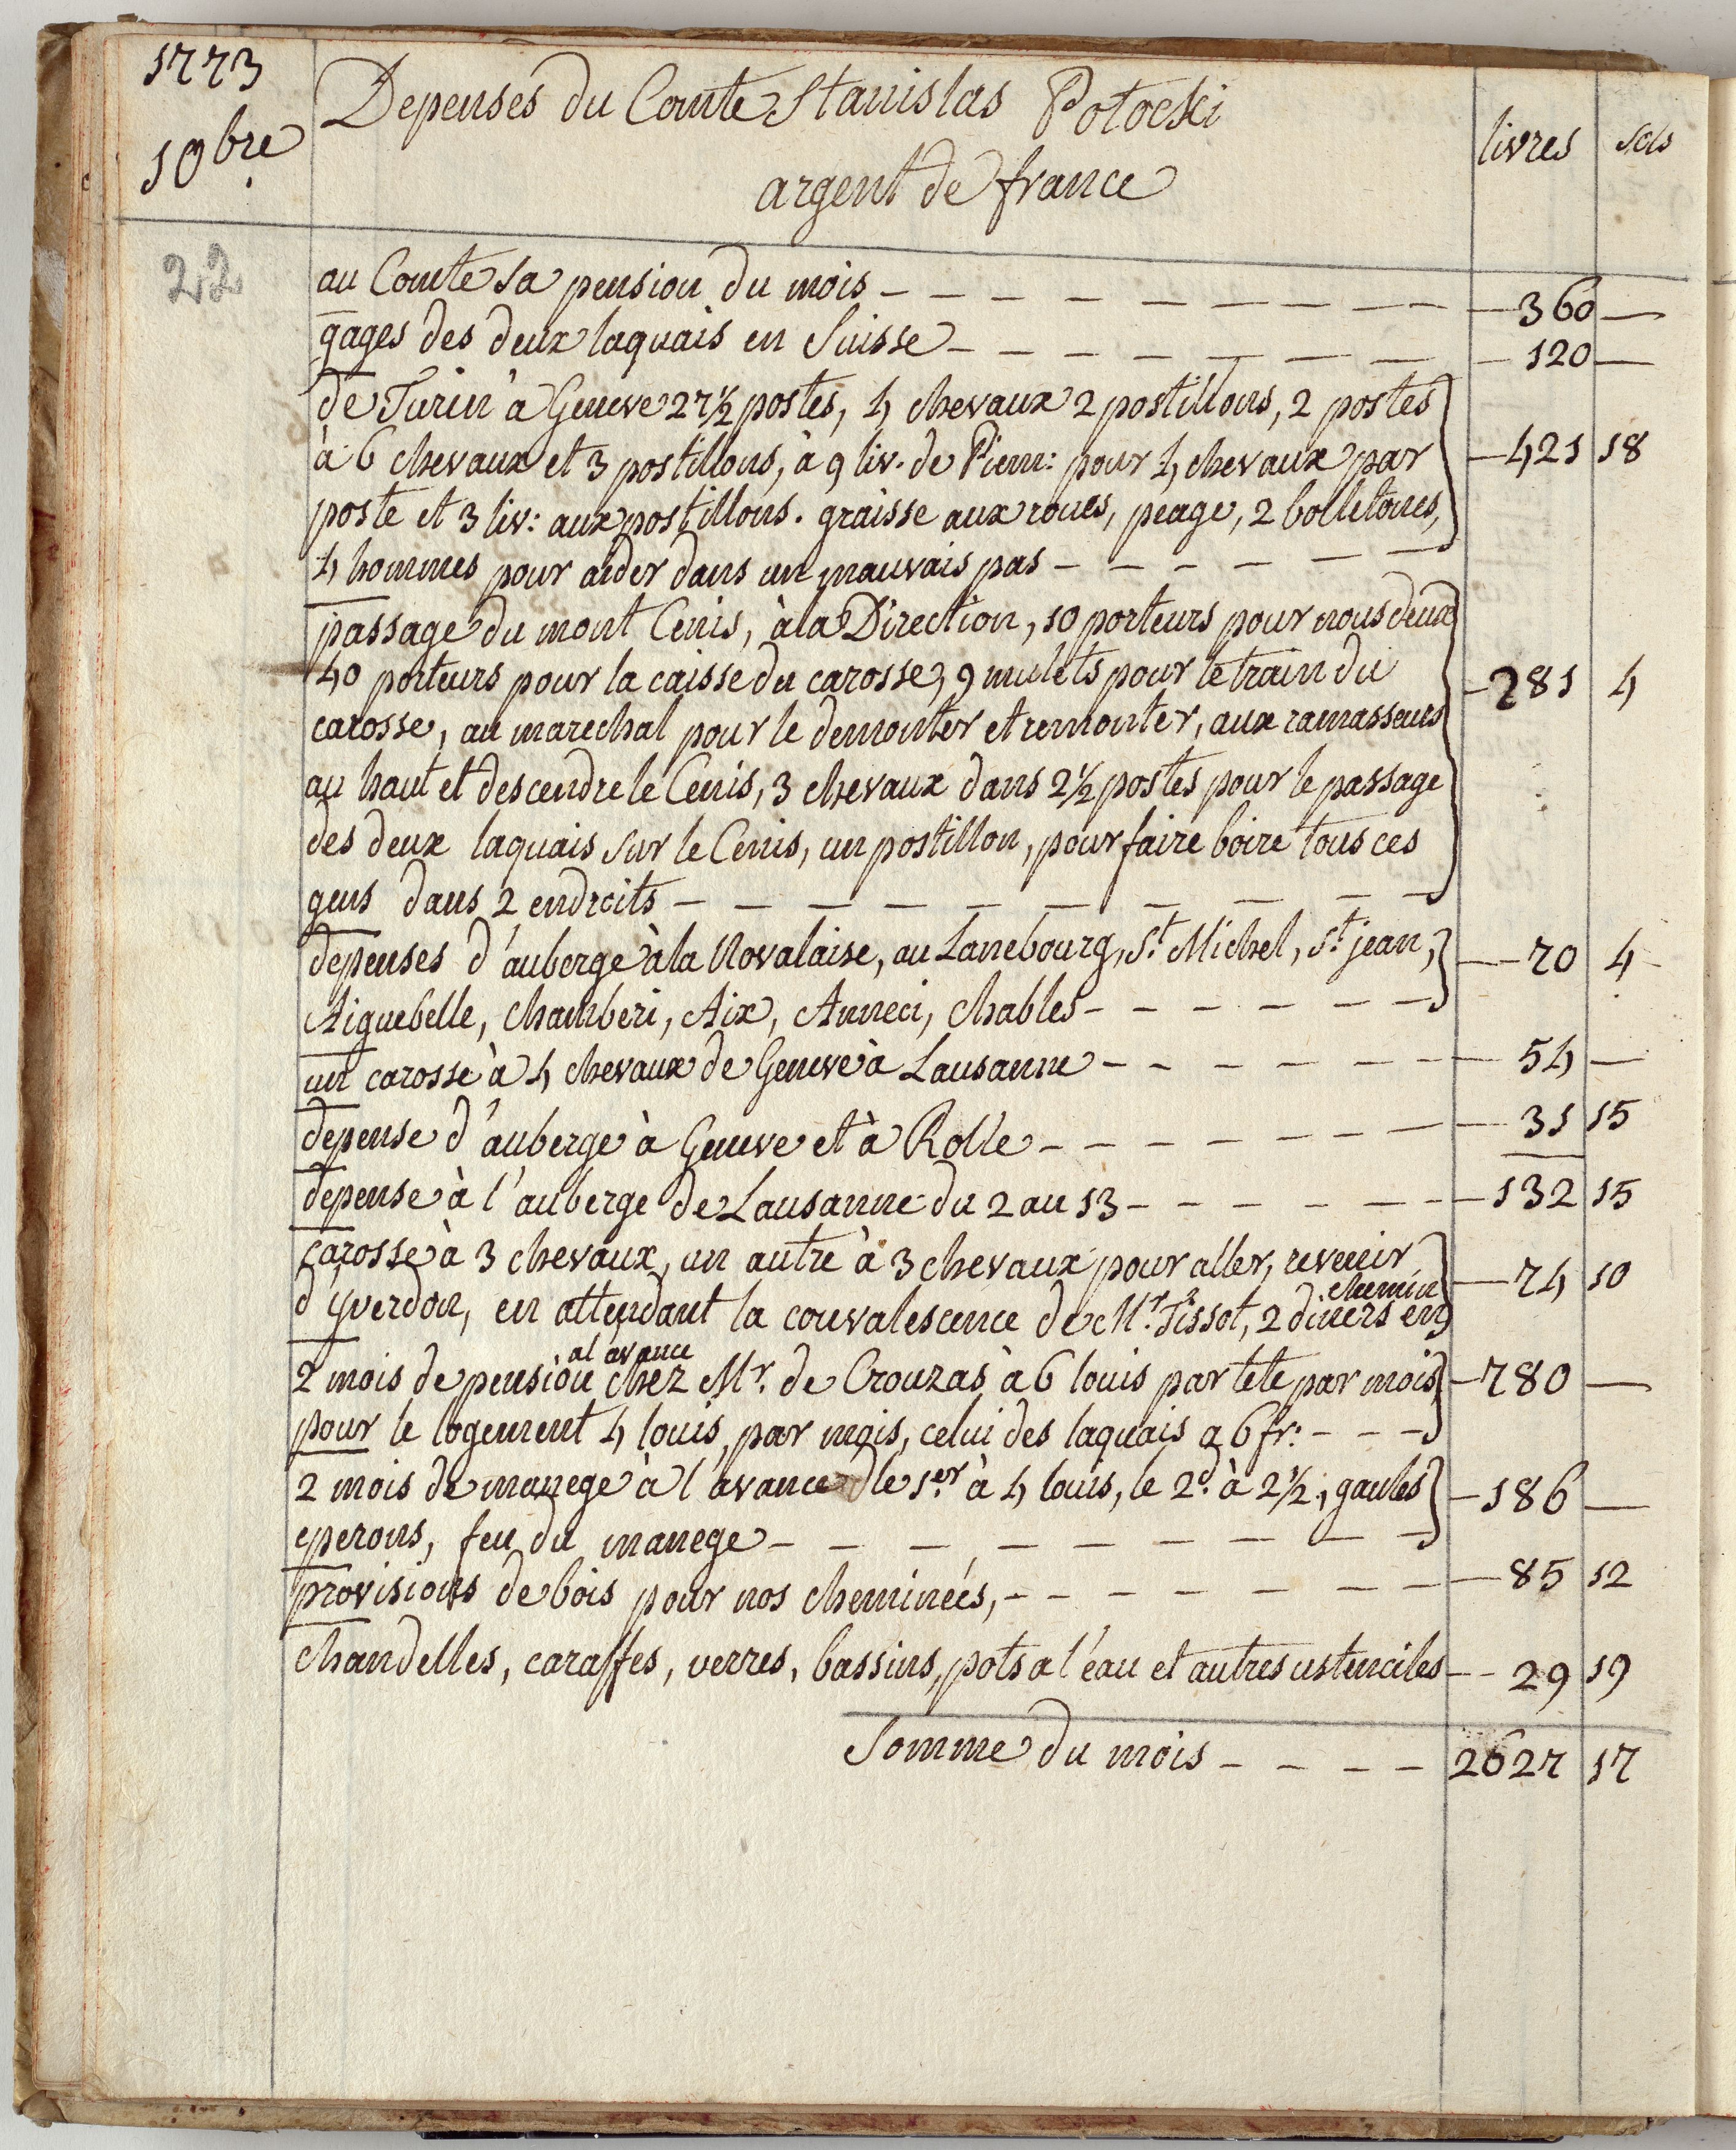 1773
10bre
Depenses du Comte Stanislas Potocki
argent de france
livres sols
22
au Comte sa pension du mois - - - - - - - - - 360 —
gages des deux laquais en Suisse - - - - - - - 120 —
de Turin à Geneve 27½ postes, 4 chevaux 2 postillons, 2 postes
à 6 chevaux et 3 postillons, à 9 liv. de Piem: pour 4 chevaux par 421 18
poste et 3 liv: aux postillons. graisse aux roues, peage, 2 bolletones,
4 hommes pour aider dans un mauvais pas - - - - - -
passage du mont Cenis, à la Direction, 10 porteurs pour nous deux
40 porteurs pour la caisse du carosse, 9 mulets pour le train du 281 4
carosse, au marechal pour le demonter et remonter, aux ramasseurs
au haut et descendre le Cenis, 3 chevaux dans 2½ postes pour le passage
des deux laquais sur le Cenis, un postillon, pour faire boire tous ces
gens dans 2 endroits - - - - - - - - -
depenses d'auberge à la Novalaise, au Lanebourg, St. Michel, St. jean, 70 4
Aiguebelle, Chamberi, Aix, Anneci, Chables - - - - - -
un carosse à 4 chevaux de Geneve à Lausanne - - - - - - 54 —
depense d'auberge à Geneve et à Rolle - - - - - - - 31 15
depense à l'auberge de Lausanne du 2 au 13 - - - - - - 132 15
carosse à 3 chevaux, un autre à 3 chevaux pour aller, revenir
chemin 74 10
d'Yverdon, en attendant la convalescence de Mr. Tissot, 2 diners en
al'avance
2 mois de pension chez Mr. de Crouzas à 6 louis par tete par mois 780 —
pour le logement 4 louis par mois, celui des laquais a 6 fr: - - -
2 mois de manege à l'avance le 1er. à 4 louis, le 2d. à 2½, gaules 186 —
eperons, feu du manege - - - - - - - - -
provisions de bois pour nos cheminées, - - - - - - - 85 12
chandelles, caraffes, verres, bassins, pots a l'eau et autres ustenciles - - 29 19
Somme du mois - - - - 2627 17